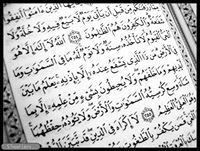 رَزَقْنَٰكُم مِّن قَبْلِ أَن يَأْتِىَ يَوْمٌ لَّا بَيْعٌ فِيهِ وَلَا خُلَّةٌ وَلَا
شَفَٰعَةٌ وَٱلْكَٰفِرُونَ هُمُ ٱلظَّٰلِمُونَ ٢٥٤ ٱللَّهُ لَآ إِلَٰهَ إِلَّا هُوَ
ٱلْحَىُّ ٱلْقَيُّومُ لَا تَأْخُذُهُۥ سِنَةٌ وَلَا نَوْمٌ لَّهُۥ مَا فِى ٱلسَّمَٰوَٰتِ وَمَا
فِى ٱلْأَرْضِ مَن ذَا ٱلَّذِى يَشْفَعُ عِندَهُۥٓ إِلَّا بِإِذْنِهِۦ يَعْلَمُ مَا بَيْنَ
أَيْدِيهِمْ وَمَا خَلْفَهُمْ وَلَا يُحِيطُونَ بِشَىْءٍ مِّنْ عِلْمِهِۦٓ إِلَّا بِمَا
شَآءَ وَسِعَ كُرْسِيُّهُ ٱلسَّمَٰوَٰتِ وَٱلْأَرْضَ وَلَا يَـُٔودُهُۥ حِفْظُهُمَا
وَهُوَ ٱلْعَلِىُّ ٱلْعَظِيمُ ٢٥٥ لَآ إِكْرَاهَ فِى ٱلدِّينِ قَد تَّبَيَّنَ
ٱلْغَىِّ فَمَن يَكْفُرْ بِٱلطَّٰغُوتِ